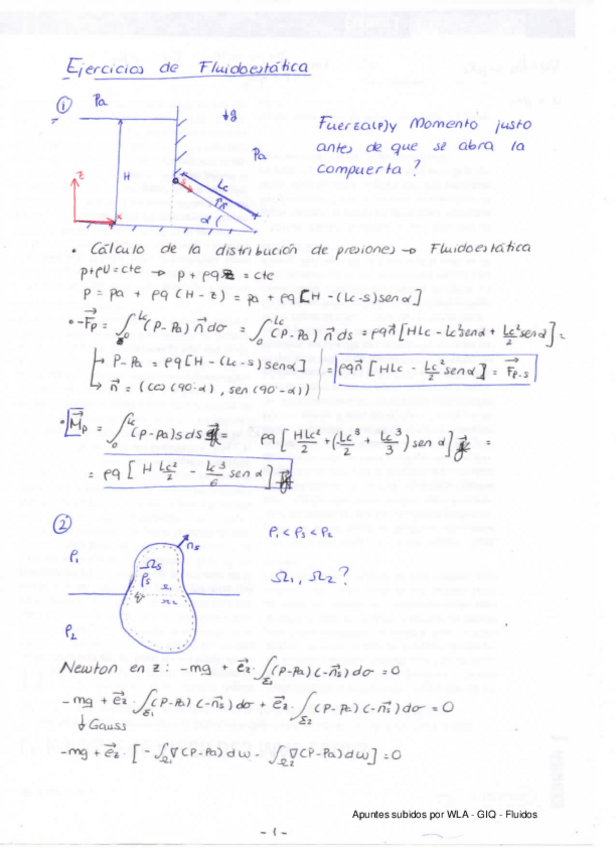 Ejercicios de Fluidoestática
① Pa
↓g
Pa
H
Lc
α
z
x
Fuerza(P) y Momento justo
antes de que se abra la
compuerta?
• Cálculo de la distribución de presiones → Fluidoestática
p+ρU=cte → p + ρgz = cte
P = Pa + ρg (H - z) = Pa + ρg [H - (Lc-s) sen α]
• -F⃗p = ∫₀^Lc (P-Pa) n⃗ dσ = ∫₀^Lc (P-Pa) n⃗ ds = ρg n⃗ [HLc - Lc² sen α + Lc²/2 sen α] =
↳ P-Pa = ρg [H - (Lc-s) sen α]
= ρg n⃗ [HLc - Lc²/2 sen α] = F⃗p-s
↳ n⃗ = (cos (90-α), sen (90-α))
• M⃗p = ∫₀^Lc (P-Pa) s ds = ρg [HLc²/2 + (-Lc³/2 + Lc³/3) sen α] =
= ρg [H Lc²/2 - Lc³/6 sen α]
②
ρ₁ < ρs < ρ₂
n⃗s
Ωs
ρs
ρ₁
Ω₁
Ω₂
Ω₁, Ω₂?
ρ₂
Newton en z: -mg + e⃗z · ∫Σs (P-Pa) (-n⃗s) dσ = 0
-mg + e⃗z · ∫Σ₁ (P-Pa) (-n⃗s) dσ + e⃗z · ∫Σ₂ (P-Pa) (-n⃗s) dσ = 0
↓ Gauss
-mg + e⃗z · [-∫Ω₁ ∇(P-Pa) dω - ∫Ω₂ ∇(P-Pa) dω] = 0
Apuntes subidos por WLA - GIQ - Fluidos
- 1 -